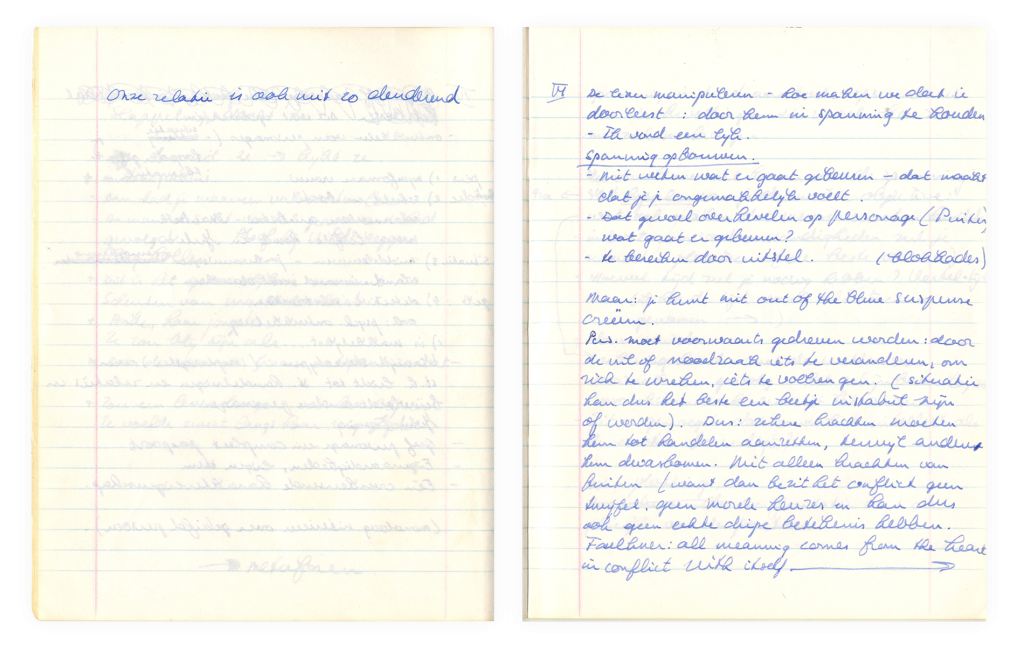 Onze relatie is ook niet zo denderend
VI De lezer manipuleren - hoe maken we dat ie
doorleest : door hem in spanning te houden
- Ik vond een lijk.
Spanning opbouwen.
- niet weten wat er gaat gebeuren - dat maakt
dat je je ongemakkelijk voelt.
- Dat gevoel overhevelen op personage (
wat gaat er gebeuren?
- te bereiken door uitstel. (-blokkades)
Maar: je kunt niet out of the blue suspense
creëren.
Pers. moet voorwaarts gedreven worden: door
de wil of noodzaak iets te veranderen, om
zich te wreken, iets te volbrengen. (situatie
kan dus het beste een beetje instabiel zijn
of worden). Dus: zekere krachten moeten
hem tot handelen aanzetten, terwijl andere
hem dwarsbomen. Niet alleen krachten van
buiten (want dan bezit het conflict geen
twijfel, geen morele keuzes en kan dus
ook geen echte diepe betekenis hebben.
Faulkner: all meaning comes from the heart
in conflict with itself →